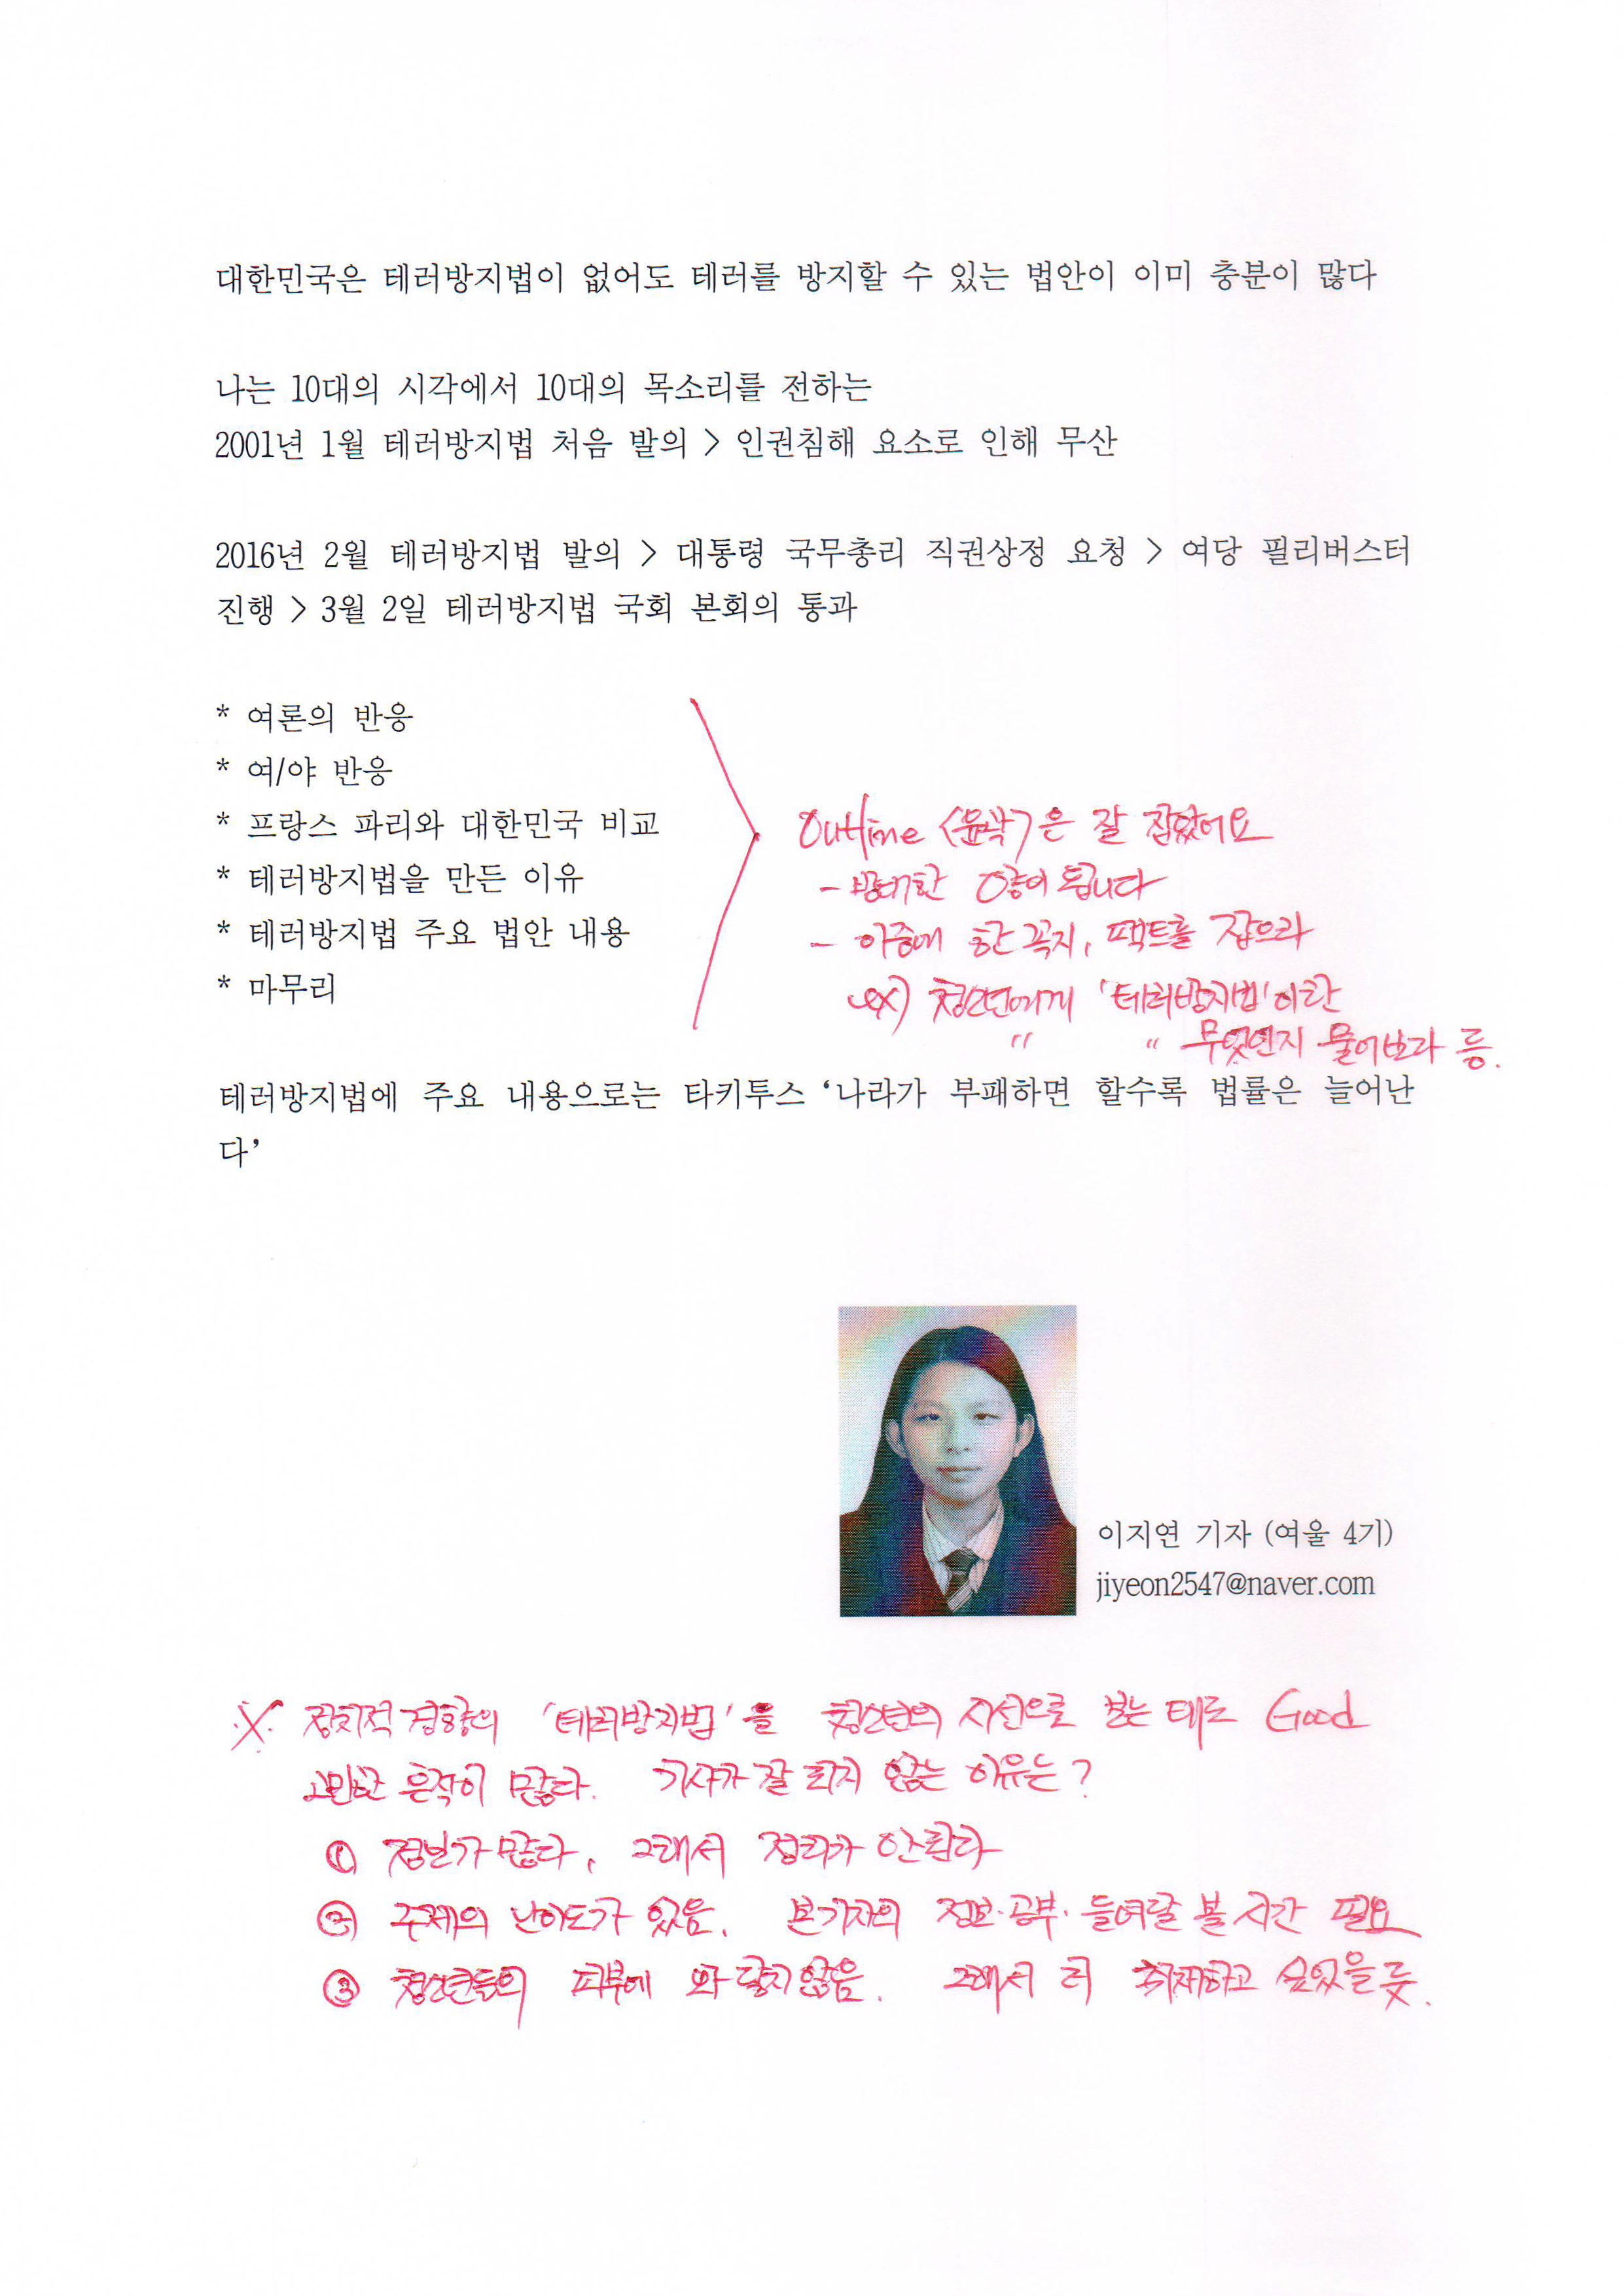 대한민국은 테러방지법이 없어도 테러를 방지할 수 있는 법안이 이미 충분이 많다
나는 10대의 시각에서 10대의 목소리를 전하는
2001년 1월 테러방지법 처음 발의 > 인권침해 요소로 인해 무산
2016년 2월 테러방지법 발의 > 대통령 국무총리 직권상정 요청 > 여당 필리버스터
진행 > 3월 2일 테러방지법 국회 본회의 통과
* 여론의 반응
* 여/야 반응
* 프랑스 파리와 대한민국 비교
* 테러방지법을 만든 이유
* 테러방지법 주요 법안 내용
* 마무리
Outline <윤곽>은 잘 잡았어요
- 방대한 양이 됩니다
- 이중에 한 꼭지, 팩트를 잡으라
ex) 청소년에게 '테러방지법'이란
" " 무엇인지 물어보라 등.
테러방지법에 주요 내용으로는 타키투스 ‘나라가 부패하면 할수록 법률은 늘어난
다’
이지연 기자 (여울 4기)
jiyeon2547@naver.com
※ 정치적 경향의 '테러방지법'을 청소년의 시선으로 보는 태도 Good
고민한 흔적이 많다. 기사가 잘 되지 않는 이유는?
① 정보가 많다, 그래서 정리가 안된다
② 주제의 난이도가 있음. 본기자의 정보·공부· 들여다 볼 시간 필요
③ 청소년들의 피부에 와 닿지 않음. 그래서 더 취재하고 싶었을 듯.